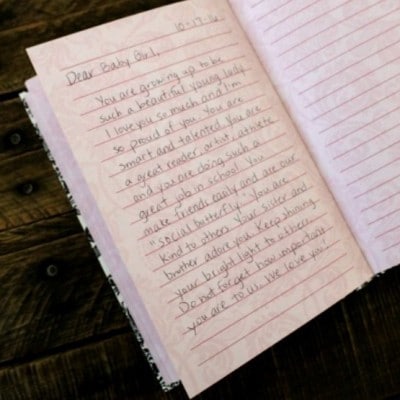 10-17-16
Dear Baby Girl,
You are growing up to be
such a beautiful young lady
I love you so much and I'm
so proud of you. You are
smart and talented. You are
a great reader, artist, athlete
and you are doing such a
great job in school. You
make friends easily and are our
"social butterfly". You are
kind to others. Your sister and
brother adore you. Keep shining
your bright light to others.
Do not forget how important
you are to us. We love you!